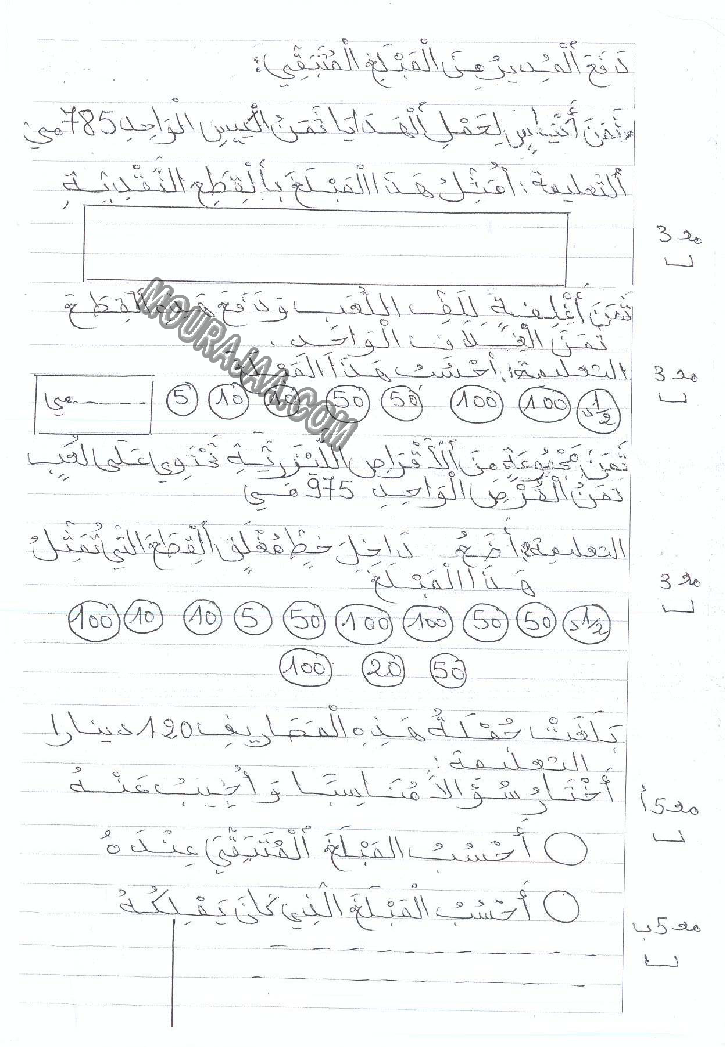 دَفَعَ اَلْمُدِيرُ مِنَ الْمَبْلَغِ الْمُتَبَقِّي:
ثَمَنَ أَكْيَاسٍ لِحَمْلِ اَلْهَدَايَا ثَمَنُ الْكِيسِ الْوَاحِدِ 785 مي
التعليمة: أُمَثِّلُ هَذَا الْمَبْلَغَ بِالْقِطَعِ النَّقْدِيَّةِ
مع 3
ثَمَنَ أَغْلِفَةٍ لِلَفِّ اللُّعَبِ وَدَفَعَ الْقِطَعَ
ثَمَنَ الْغِلَافِ الْوَاحِدِ.
التعليمة: أَحْسُبُ هَذَا
مع 3
1/2د 100 100 50 50 10 5 مي
ثَمَنَ مَجْمُوعَةٍ مِنَ الْأَقْرَاصِ اللَّيْزَرِيَّةِ تَحْتَوِي عَلَى لُعَبٍ
ثَمَنُ الْقُرْصِ الْوَاحِدِ 975 مي
التعليمة: أَضَعُ دَاخِلَ خَطٍّ مُغْلَقٍ الْقِطَعَ الَّتِي تُمَثِّلُ
هَذَا الْمَبْلَغَ
مع 3
1/2د 50 50 100 100 50 5 10 10 100
50 20 100
بَلَغَتْ جُمْلَةُ هَذِهِ الْمَصَارِيفِ 120 دينارا
التعليمة:
أَخْتَارُ سُؤَالًا مُنَاسِبًا وَأُجِيبُ عَنْهُ
مع 5 أ
أَحْسُبُ الْمَبْلَغَ الْمُتَبَقِّيَ عِنْدَهُ
أَحْسُبُ الْمَبْلَغَ الَّذِي كَانَ يَمْلِكُهُ
مع 5 ب
MOURAJAA.COM